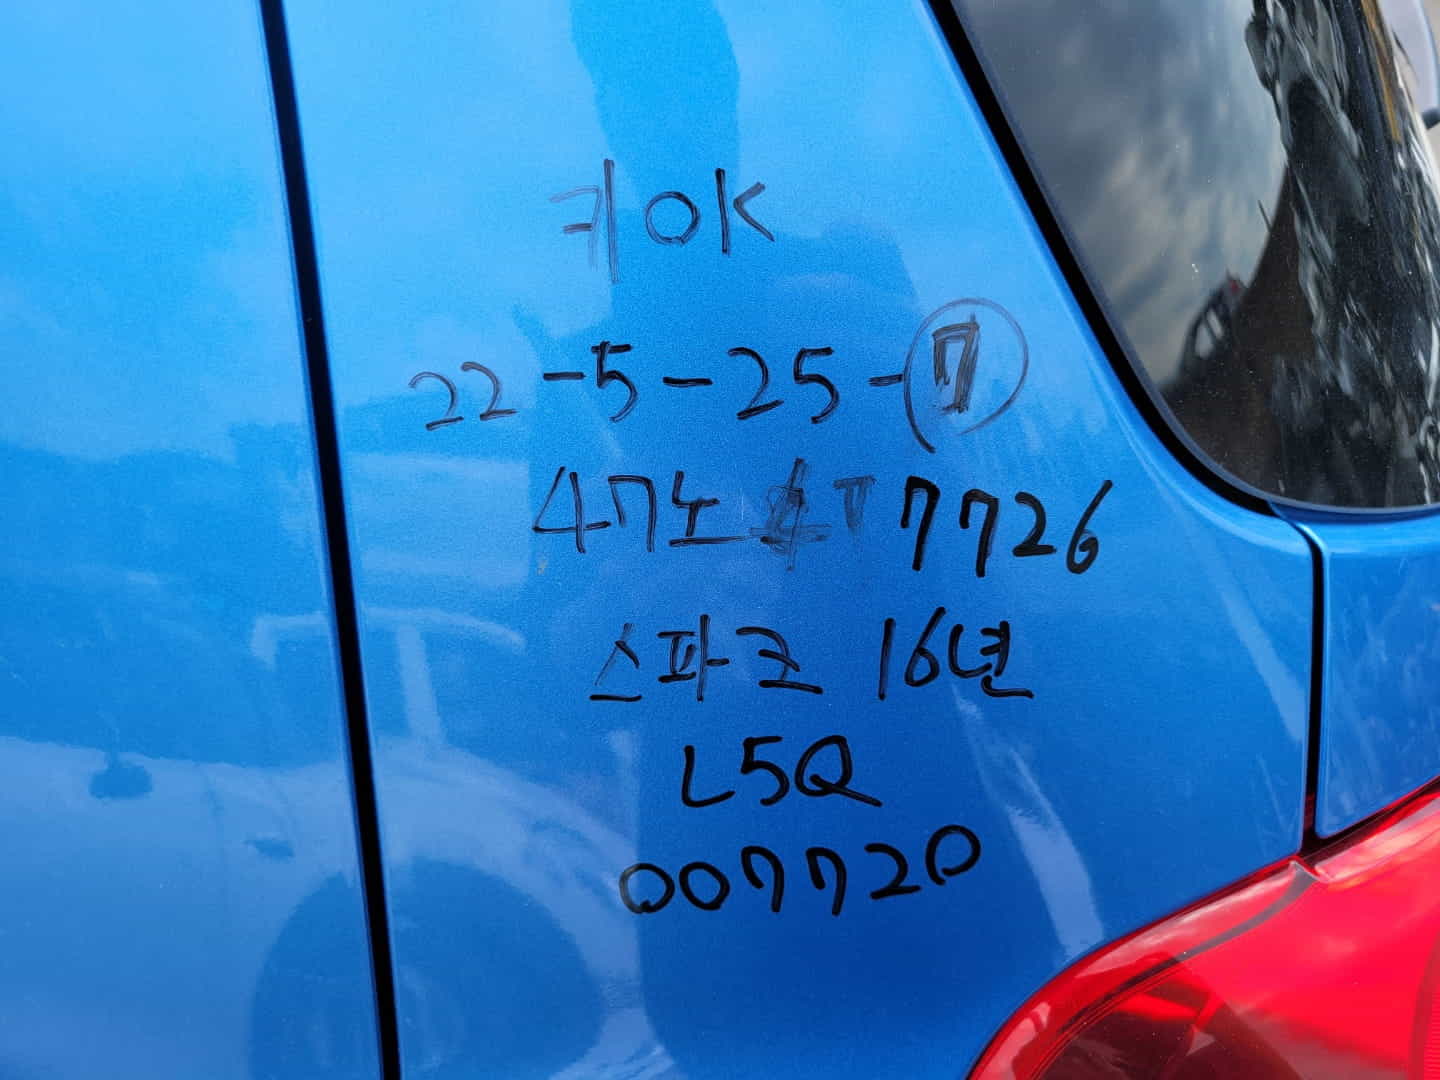 키 OK
22-5-25-7
47노 7726
스파크 16년
L5Q
007720